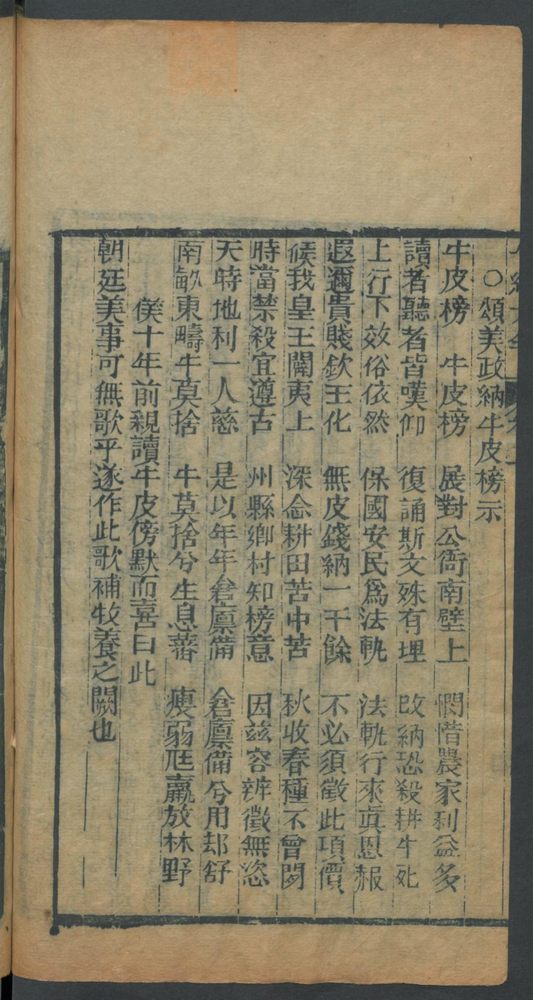 ○頌美政納牛皮榜示
牛皮榜 牛皮榜 展對公衙南壁上 憫惜農家利益多
讀者聽者皆嘆仰 復誦斯文殊有理 改納恐殺耕牛死
上行下效俗依然 保國安民爲法軌 法軌行來眞恩報
遐邇貴賤欽王化 無皮錢納一千餘 不必須徵此項價
候我皇王闡夷上 深念耕田苦中苦 秋收春種不曾閑
時當禁殺宜遵古 州縣鄉村知榜意 因茲容辨徵無恣
天時地利一人慈 是以年年倉廪備 倉廪備兮用却舒
南畝東疇牛莫捨 牛莫捨兮生息蕃 瘦弱尫羸放林野
僕十年前親讀牛皮傍默而喜曰此
朝廷美事可無歌乎遂作此歌補牧養之闕也